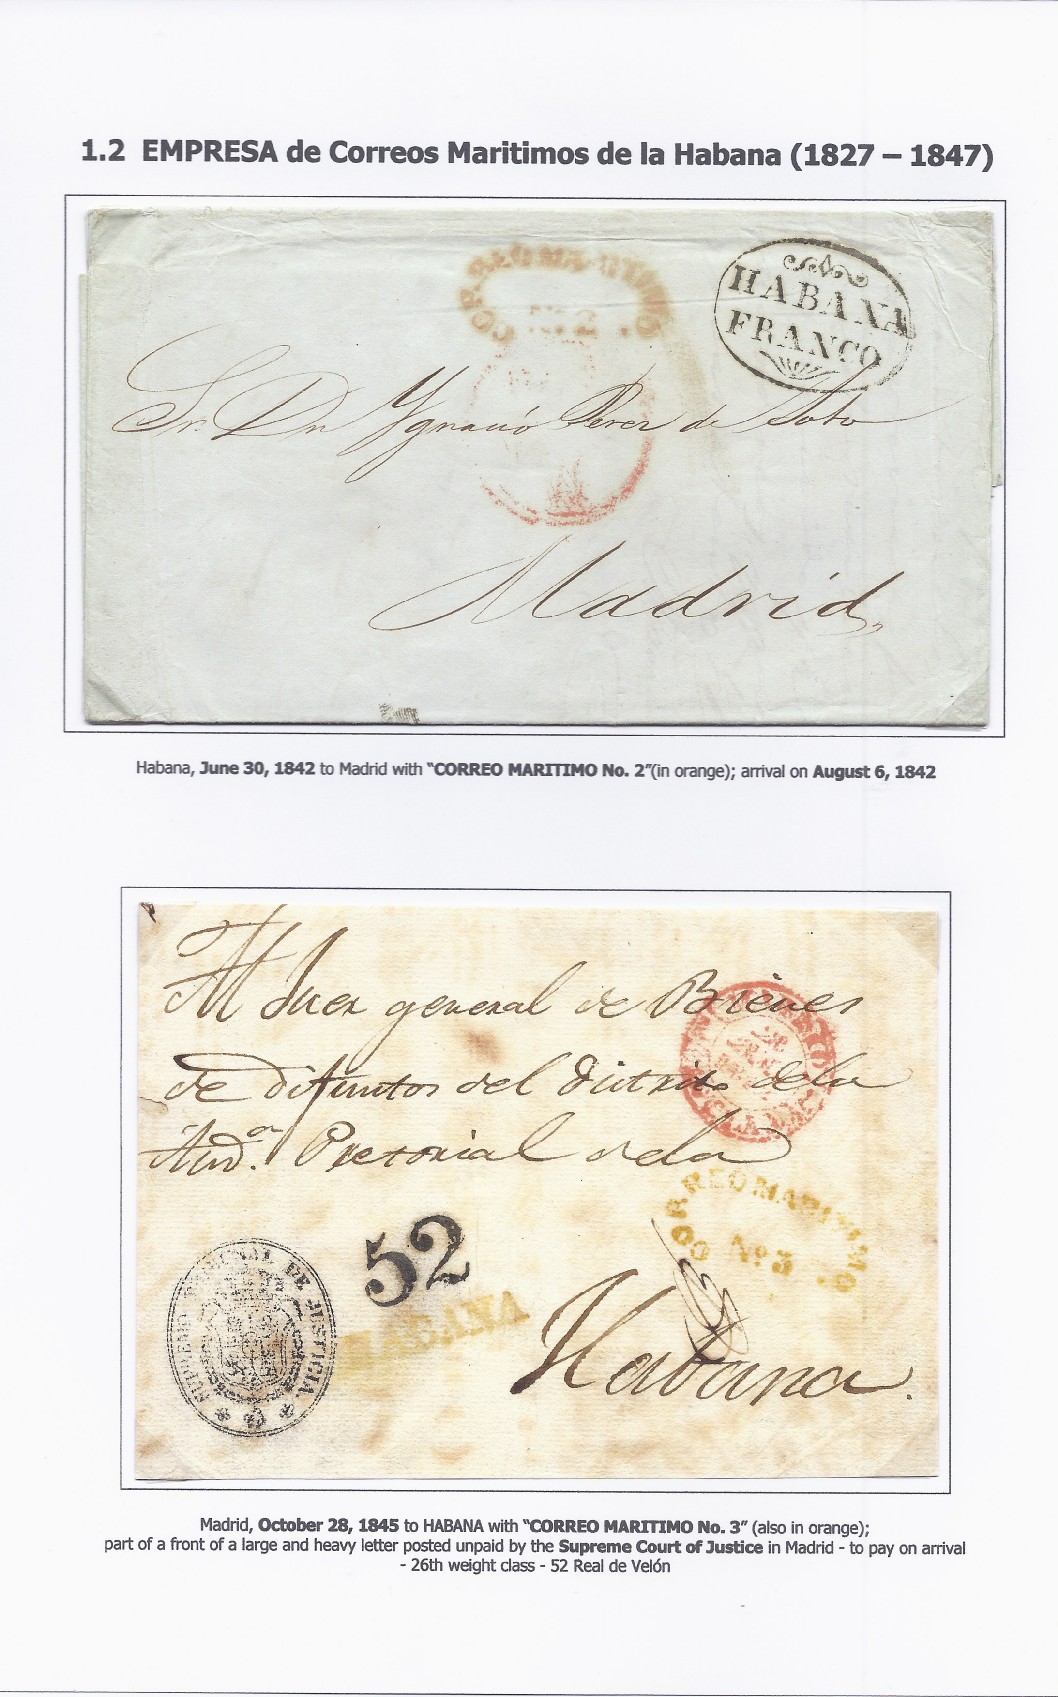 1.2 EMPRESA de Correos Maritimos de la Habana (1827 – 1847)
CORREO MARITIMO
HABANA
FRANCO
Sr. Dn Ygnacio Perez de Soto
Madrid
Habana, June 30, 1842 to Madrid with "CORREO MARITIMO No. 2"(in orange); arrival on August 6, 1842
Al Juez general de Bienes
de difuntos del distrito de la
Aud.a Pretorial de la
CORREO MARITIMO
Nº 3
52
Habana.
SUPREMO TRIBUNAL DE JUSTICIA
Madrid, October 28, 1845 to HABANA with "CORREO MARITIMO No. 3" (also in orange);
part of a front of a large and heavy letter posted unpaid by the Supreme Court of Justice in Madrid - to pay on arrival
- 26th weight class - 52 Real de Velón